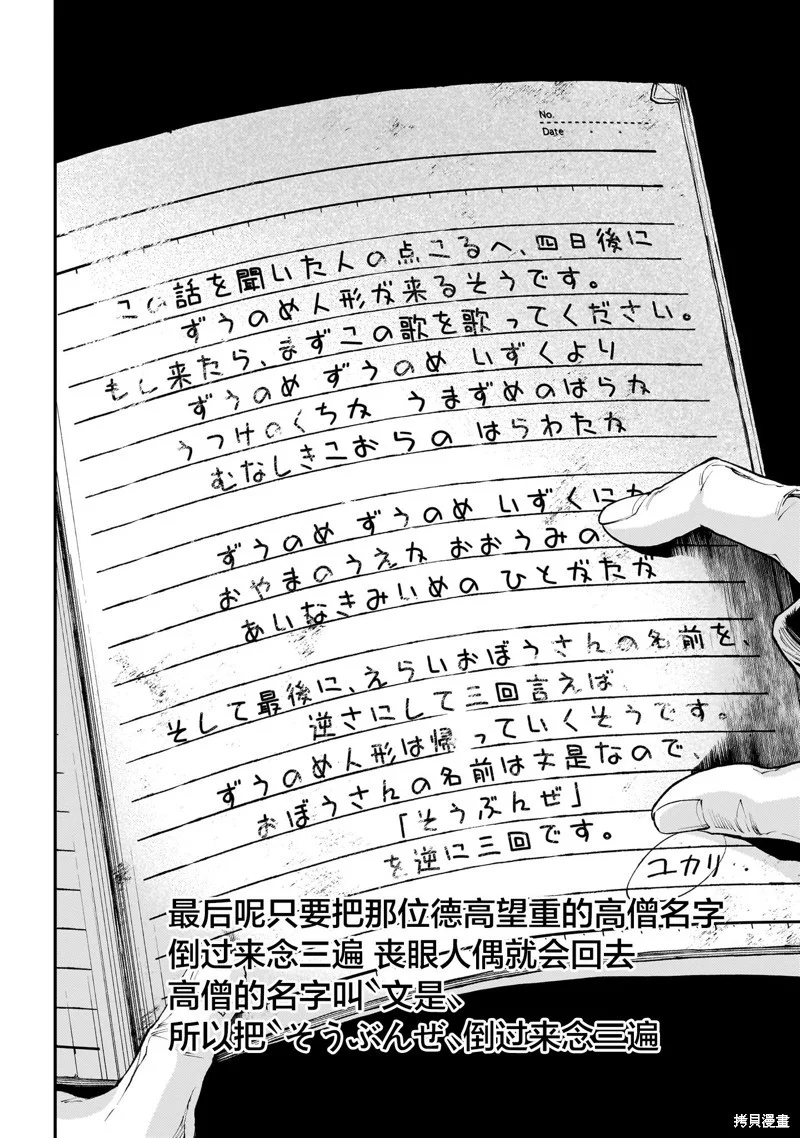 No.
Date
この話を聞いた人の点こるへ、四日後に
ずうのめ人形が来るそうです。
もし来たら、まずこの歌を歌ってください。
ずうのめ ずうのめ いずくより
うつけのくちか うまずめのはらか
むなしきこおらの はらわたか
ずうのめ ずうのめ いずくにか
おやまのうえか おおうみの
あいなきみいめの ひとがたが
そして最後に、えらいおぼうさんの名前を、
逆さにして三回言えば、
ずうのめ人形は帰っていくそうです。
おぼうさんの名前は文是なので、
「そうぶんぜ」
を逆に三回です。
ユカリ
最后呢只要把那位德高望重的高僧名字
倒过来念三遍 丧眼人偶就会回去
高僧的名字叫〝文是〟
所以把〝そうぶんぜ〟倒过来念三遍
拷貝漫畫